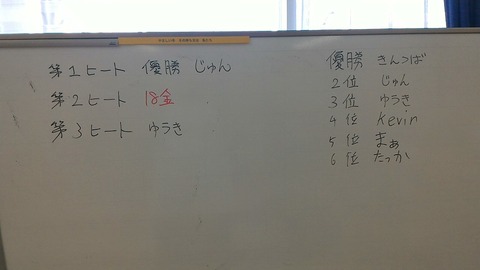 第1ヒート 優勝 じゅん
第2ヒート 18金
第3ヒート ゆうき
優勝 きんつば
2位 じゅん
3位 ゆうき
4位 Kevin
5位 まぁ
6位 たっか